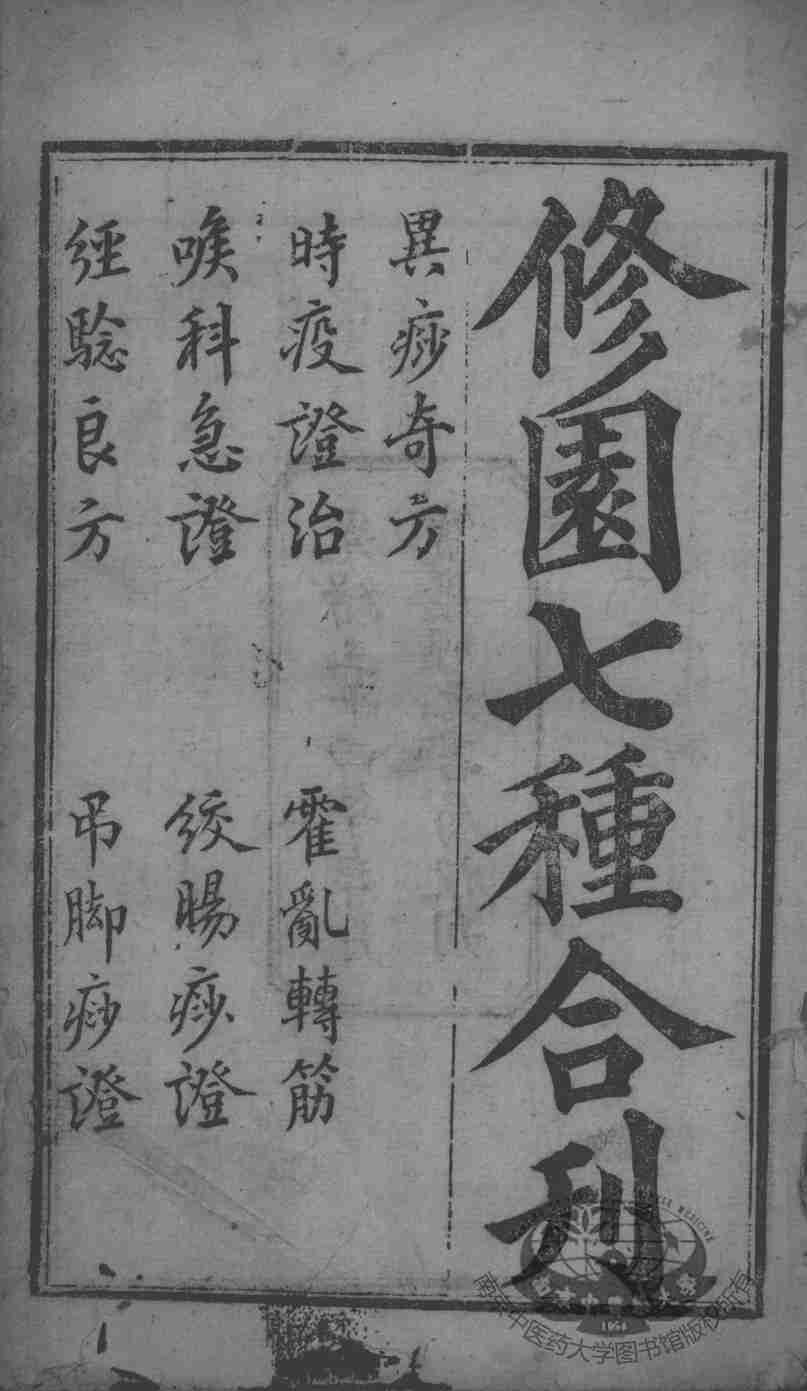 修園七種合刊
異痧奇方
時疫證治
霍亂轉筋
喉科急證
絞腸痧證
經驗良方
吊脚痧證
南京中医药大学图书馆版权所有